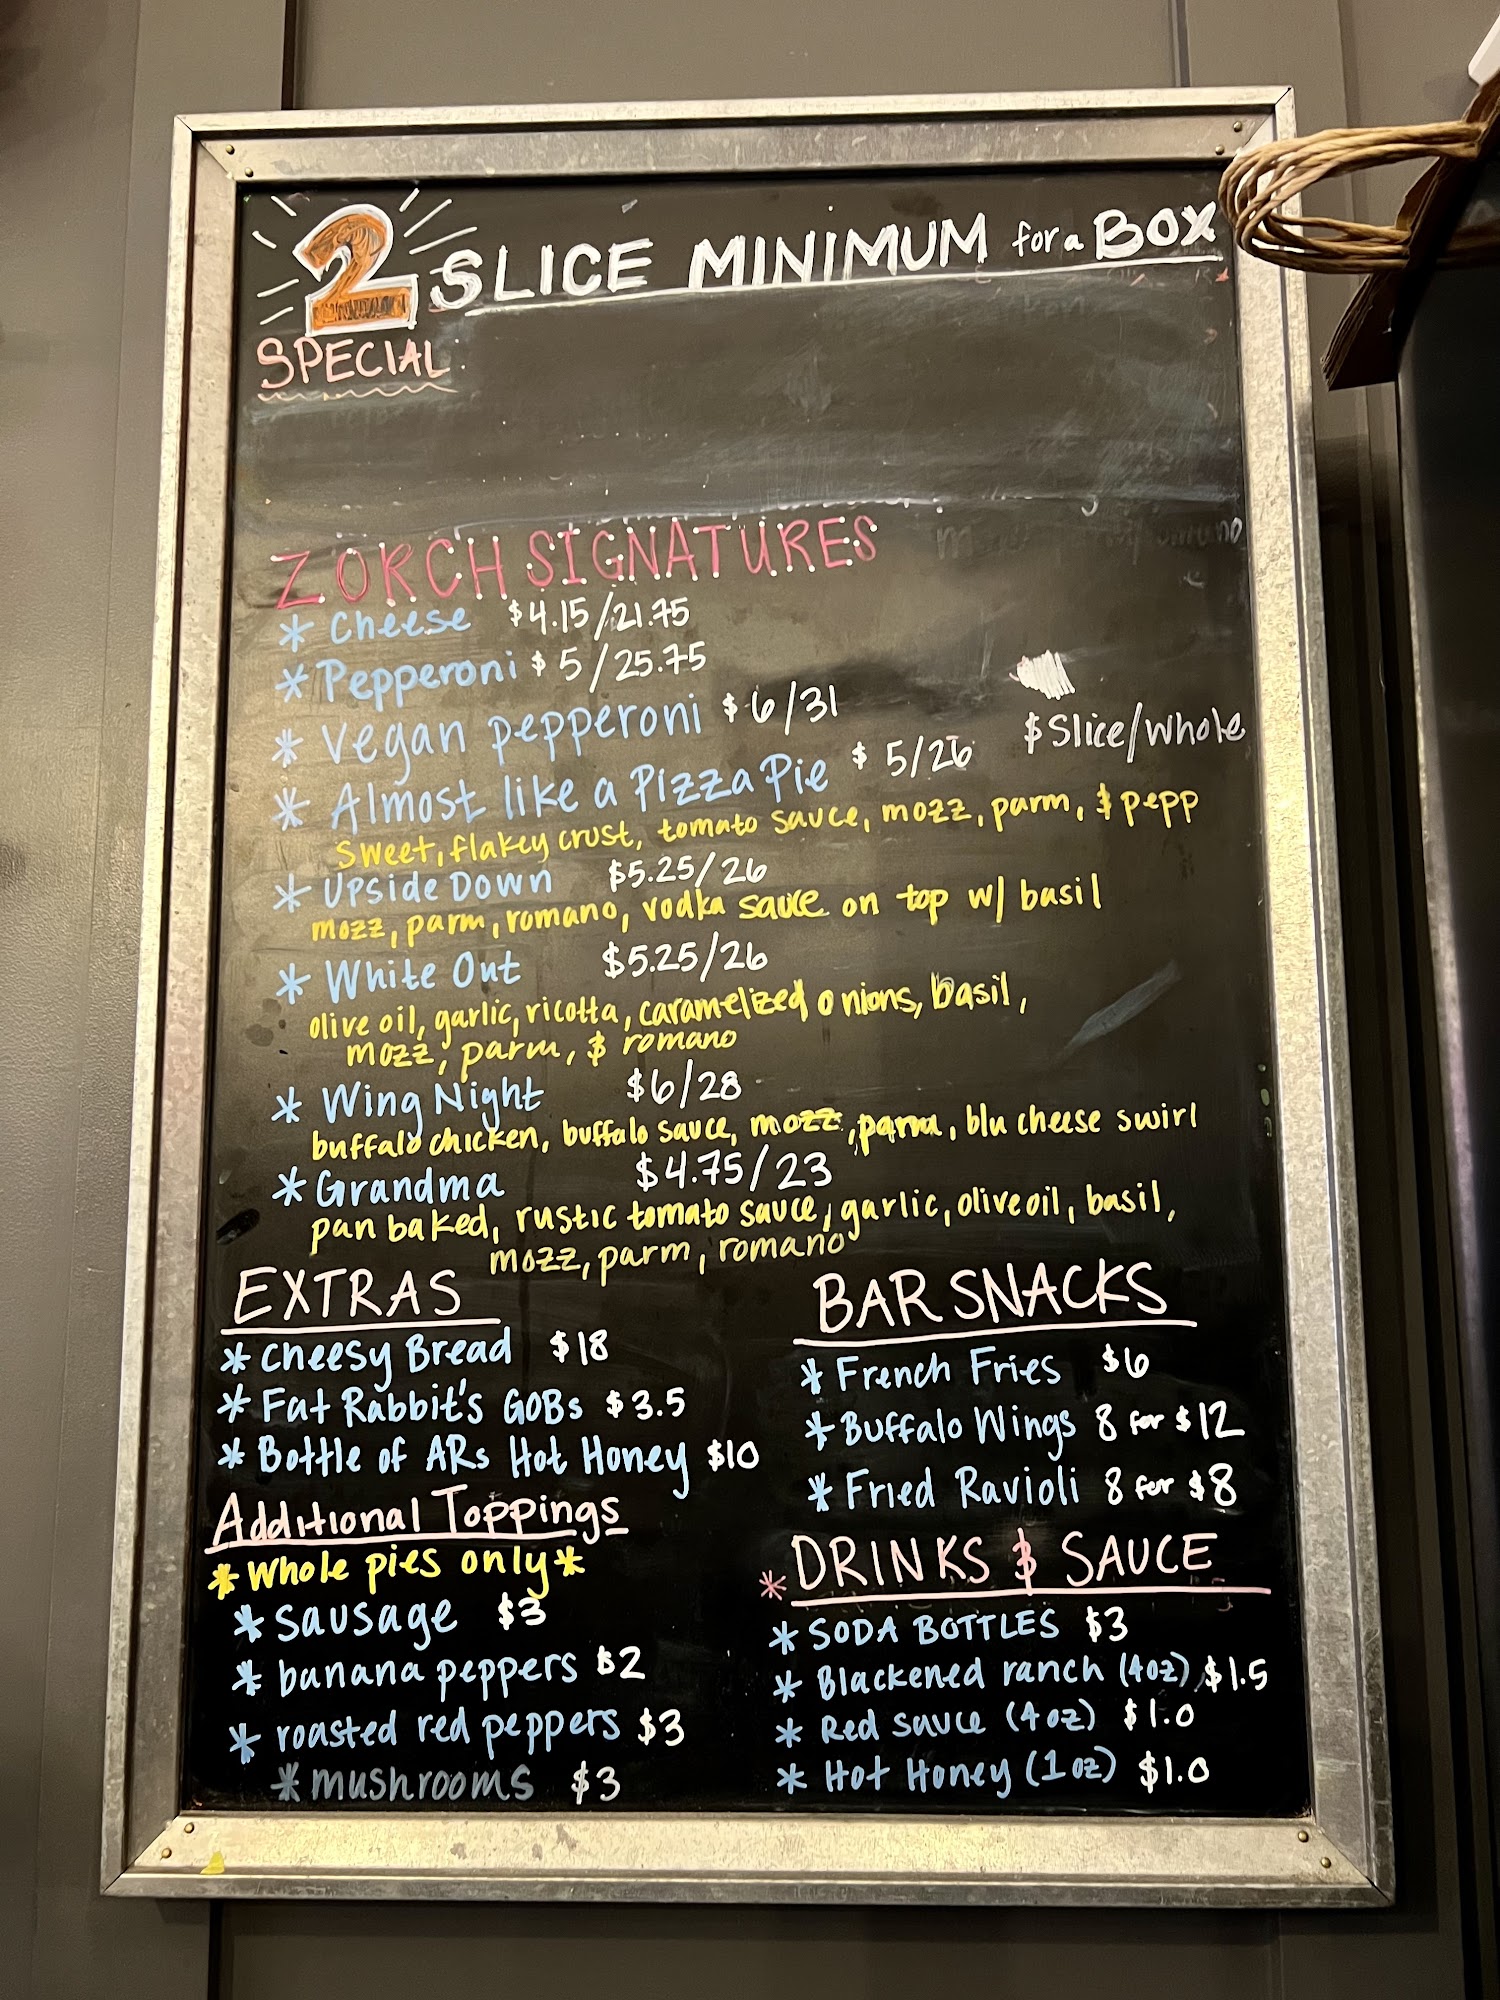 2 SLICE MINIMUM for a BOX
SPECIAL
ZORCH SIGNATURES
* Cheese $4.15/21.75
* Pepperoni $5/25.75
* Vegan pepperoni $6/31
$ Slice/Whole
* Almost like a Pizza Pie $5/26
sweet, flakey crust, tomato sauce, mozz, parm, & pepp
* Upside Down $5.25/26
mozz, parm, romano, vodka sauce on top w/ basil
* White Out $5.25/26
olive oil, garlic, ricotta, caramelized onions, basil,
mozz, parm, & romano
* Wing Night $6/28
buffalo chicken, buffalo sauce, mozz, parm, blu cheese swirl
* Grandma $4.75/23
pan baked, rustic tomato sauce, garlic, olive oil, basil,
mozz, parm, romano
EXTRAS
* Cheesy Bread $18
* Fat Rabbit's GOBs $3.5
* Bottle of ARs Hot Honey $10
Additional Toppings
* Whole pies only *
* sausage $3
* banana peppers $2
* roasted red peppers $3
* mushrooms $3
BAR SNACKS
* French Fries $6
* Buffalo Wings 8 for $12
* Fried Ravioli 8 for $8
* DRINKS & SAUCE
* SODA BOTTLES $3
* Blackened ranch (4oz) $1.5
* Red sauce (4oz) $1.0
* Hot Honey (1oz) $1.0